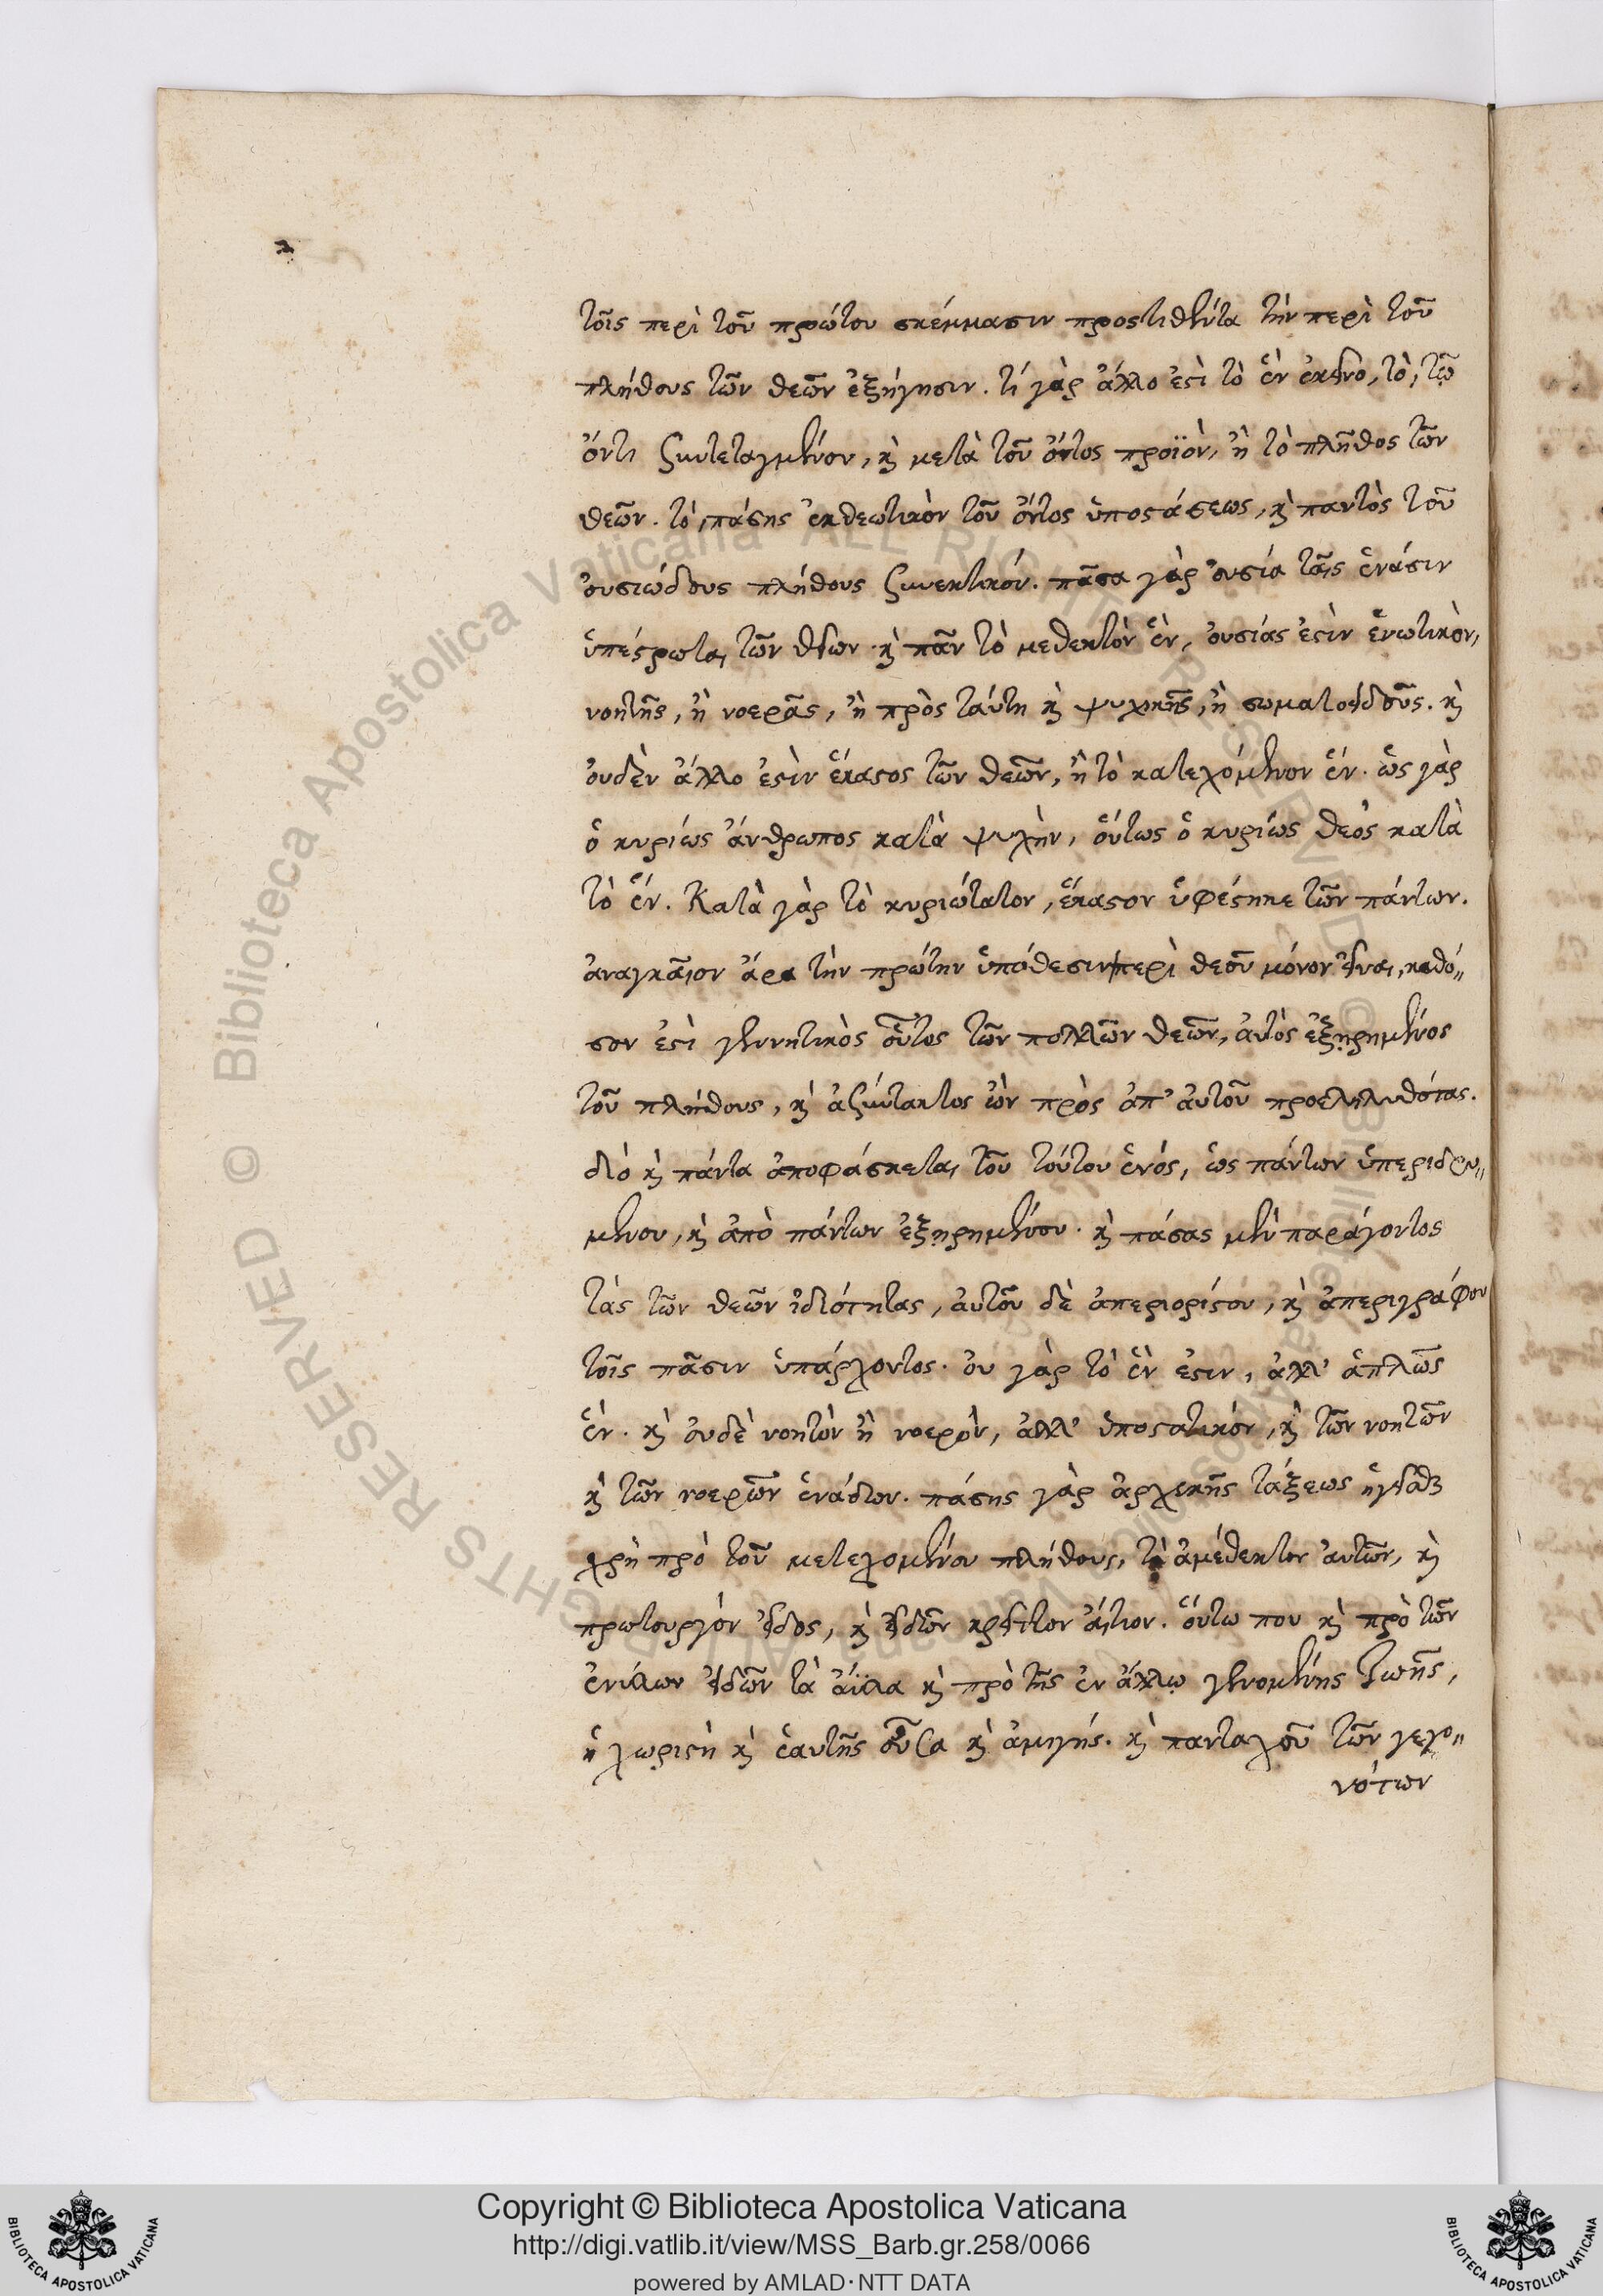 τοῖς περὶ τοῦ πρώτου σκέμμασιν προστιθέντα τὴν περὶ τοῦ
πλήθους τῶν θεῶν ἐξήγησιν. τί γὰρ ἄλλο ἐστὶ τὸ ἓν ἐκεῖνο, τὸ, τῷ
ὄντι συντεταγμένον, καὶ μετὰ τοῦ ὄντος προϊὸν, ἢ τὸ πλῆθος τῶν
θεῶν. τὸ, πάσης ἐκθεωτικὸν τοῦ ὄντος ὑποστάσεως, καὶ παντὸς τοῦ
οὐσιώδους πλήθους συνεκτικόν. πᾶσα γὰρ οὐσία ταῖς ἑνάσιν
ὑπέστρωται τῶν θείων. καὶ πᾶν τὸ μεθεκτὸν ἓν, οὐσίας ἐστὶν ἑνωτικὸν,
νοητῆς, ἢ νοερᾶς, ἢ πρὸς ταύτῃ καὶ ψυχικῆς, ἢ σωματοειδοῦς. καὶ
οὐδὲν ἄλλο ἐστὶν ἕκαστος τῶν θεῶν, ἢ τὸ κατεχόμενον ἕν. ὡς γὰρ
ὁ κυρίως ἄνθρωπος κατὰ ψυχὴν, οὕτως ὁ κυρίως θεὸς κατὰ
τὸ ἕν. Κατὰ γὰρ τὸ κυριώτατον, ἕκαστον ὑφέστηκε τῶν πάντων.
ἀναγκαῖον ἄρα τὴν πρώτην ὑπόθεσιν περὶ θεοῦ μόνον εἶναι, καθό„
σον ἐστὶ γεννητικὸς οὗτος τῶν πολλῶν θεῶν, αὐτὸς ἐξῃρημένος
τοῦ πλήθους, καὶ ἀσύντακτος ὢν πρὸς ἀπ' αὐτοῦ προεληλυθότας.
διὸ καὶ πάντα ἀποφάσκεται τοῦ τούτου ἑνός, ὡς πάντων ὑπεριδρυ„
μένου, καὶ ἀπὸ πάντων ἐξῃρημένου. καὶ πάσας μὲν παράγοντος
τὰς τῶν θεῶν ἰδιότητας, αὐτοῦ δὲ ἀπεριορίστου, καὶ ἀπεριγράφου
τοῖς πᾶσιν ὑπάρχοντος. οὐ γὰρ τὸ ἓν ἐστιν, ἀλλ' ἁπλῶς
ἕν. καὶ οὐδὲ νοητὸν ἢ νοερὸν, ἀλλ' ὑποστατικόν, καὶ τῶν νοητῶν
καὶ τῶν νοερῶν ἑνάδων. πάσης γὰρ ἀρχικῆς τάξεως ἡγεῖσθαι
χρὴ πρὸ τοῦ μετεχομένου πλήθους, τὸ ἀμέθεκτον αὐτῶν, καὶ
πρωτουργὸν εἶδος, καὶ εἰδῶν κρεῖττον αἴτιον. οὕτω που καὶ πρὸ τῶν
ἐνύλων εἰδῶν τὰ ἄϋλα καὶ πρὸ τῆς ἐν ἄλλῳ γενομένης ζωῆς,
ἡ χωριστὴ καὶ ἑαυτῆς οὖσα καὶ ἀμιγής. καὶ πανταχοῦ τῶν γεγο„
νότων
Copyright © Biblioteca Apostolica Vaticana
http://digi.vatlib.it/view/MSS_Barb.gr.258/0066
powered by AMLAD·NTT DATA
BIBLIOTECA APOSTOLICA VATICANA
BIBLIOTECA APOSTOLICA VATICANA
© Biblioteca Apostolica Vaticana ALL RIGHTS RESERVED